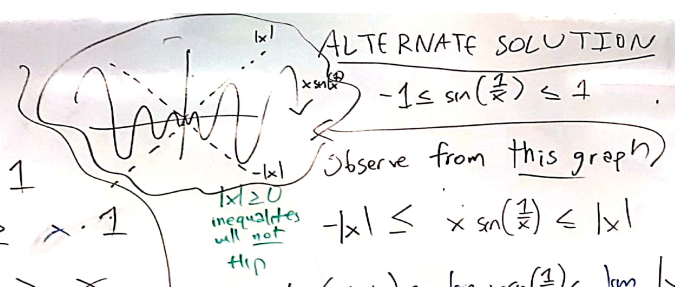 ALTERNATE SOLUTION
|x|
x sin(1/x)
-1 ≤ sin(1/x) ≤ 1
-|x|
Observe from this graph)
1
|x| ≥ 0
inequalities
will not
flip
x · 1
-|x| ≤ x sin(1/x) ≤ |x|